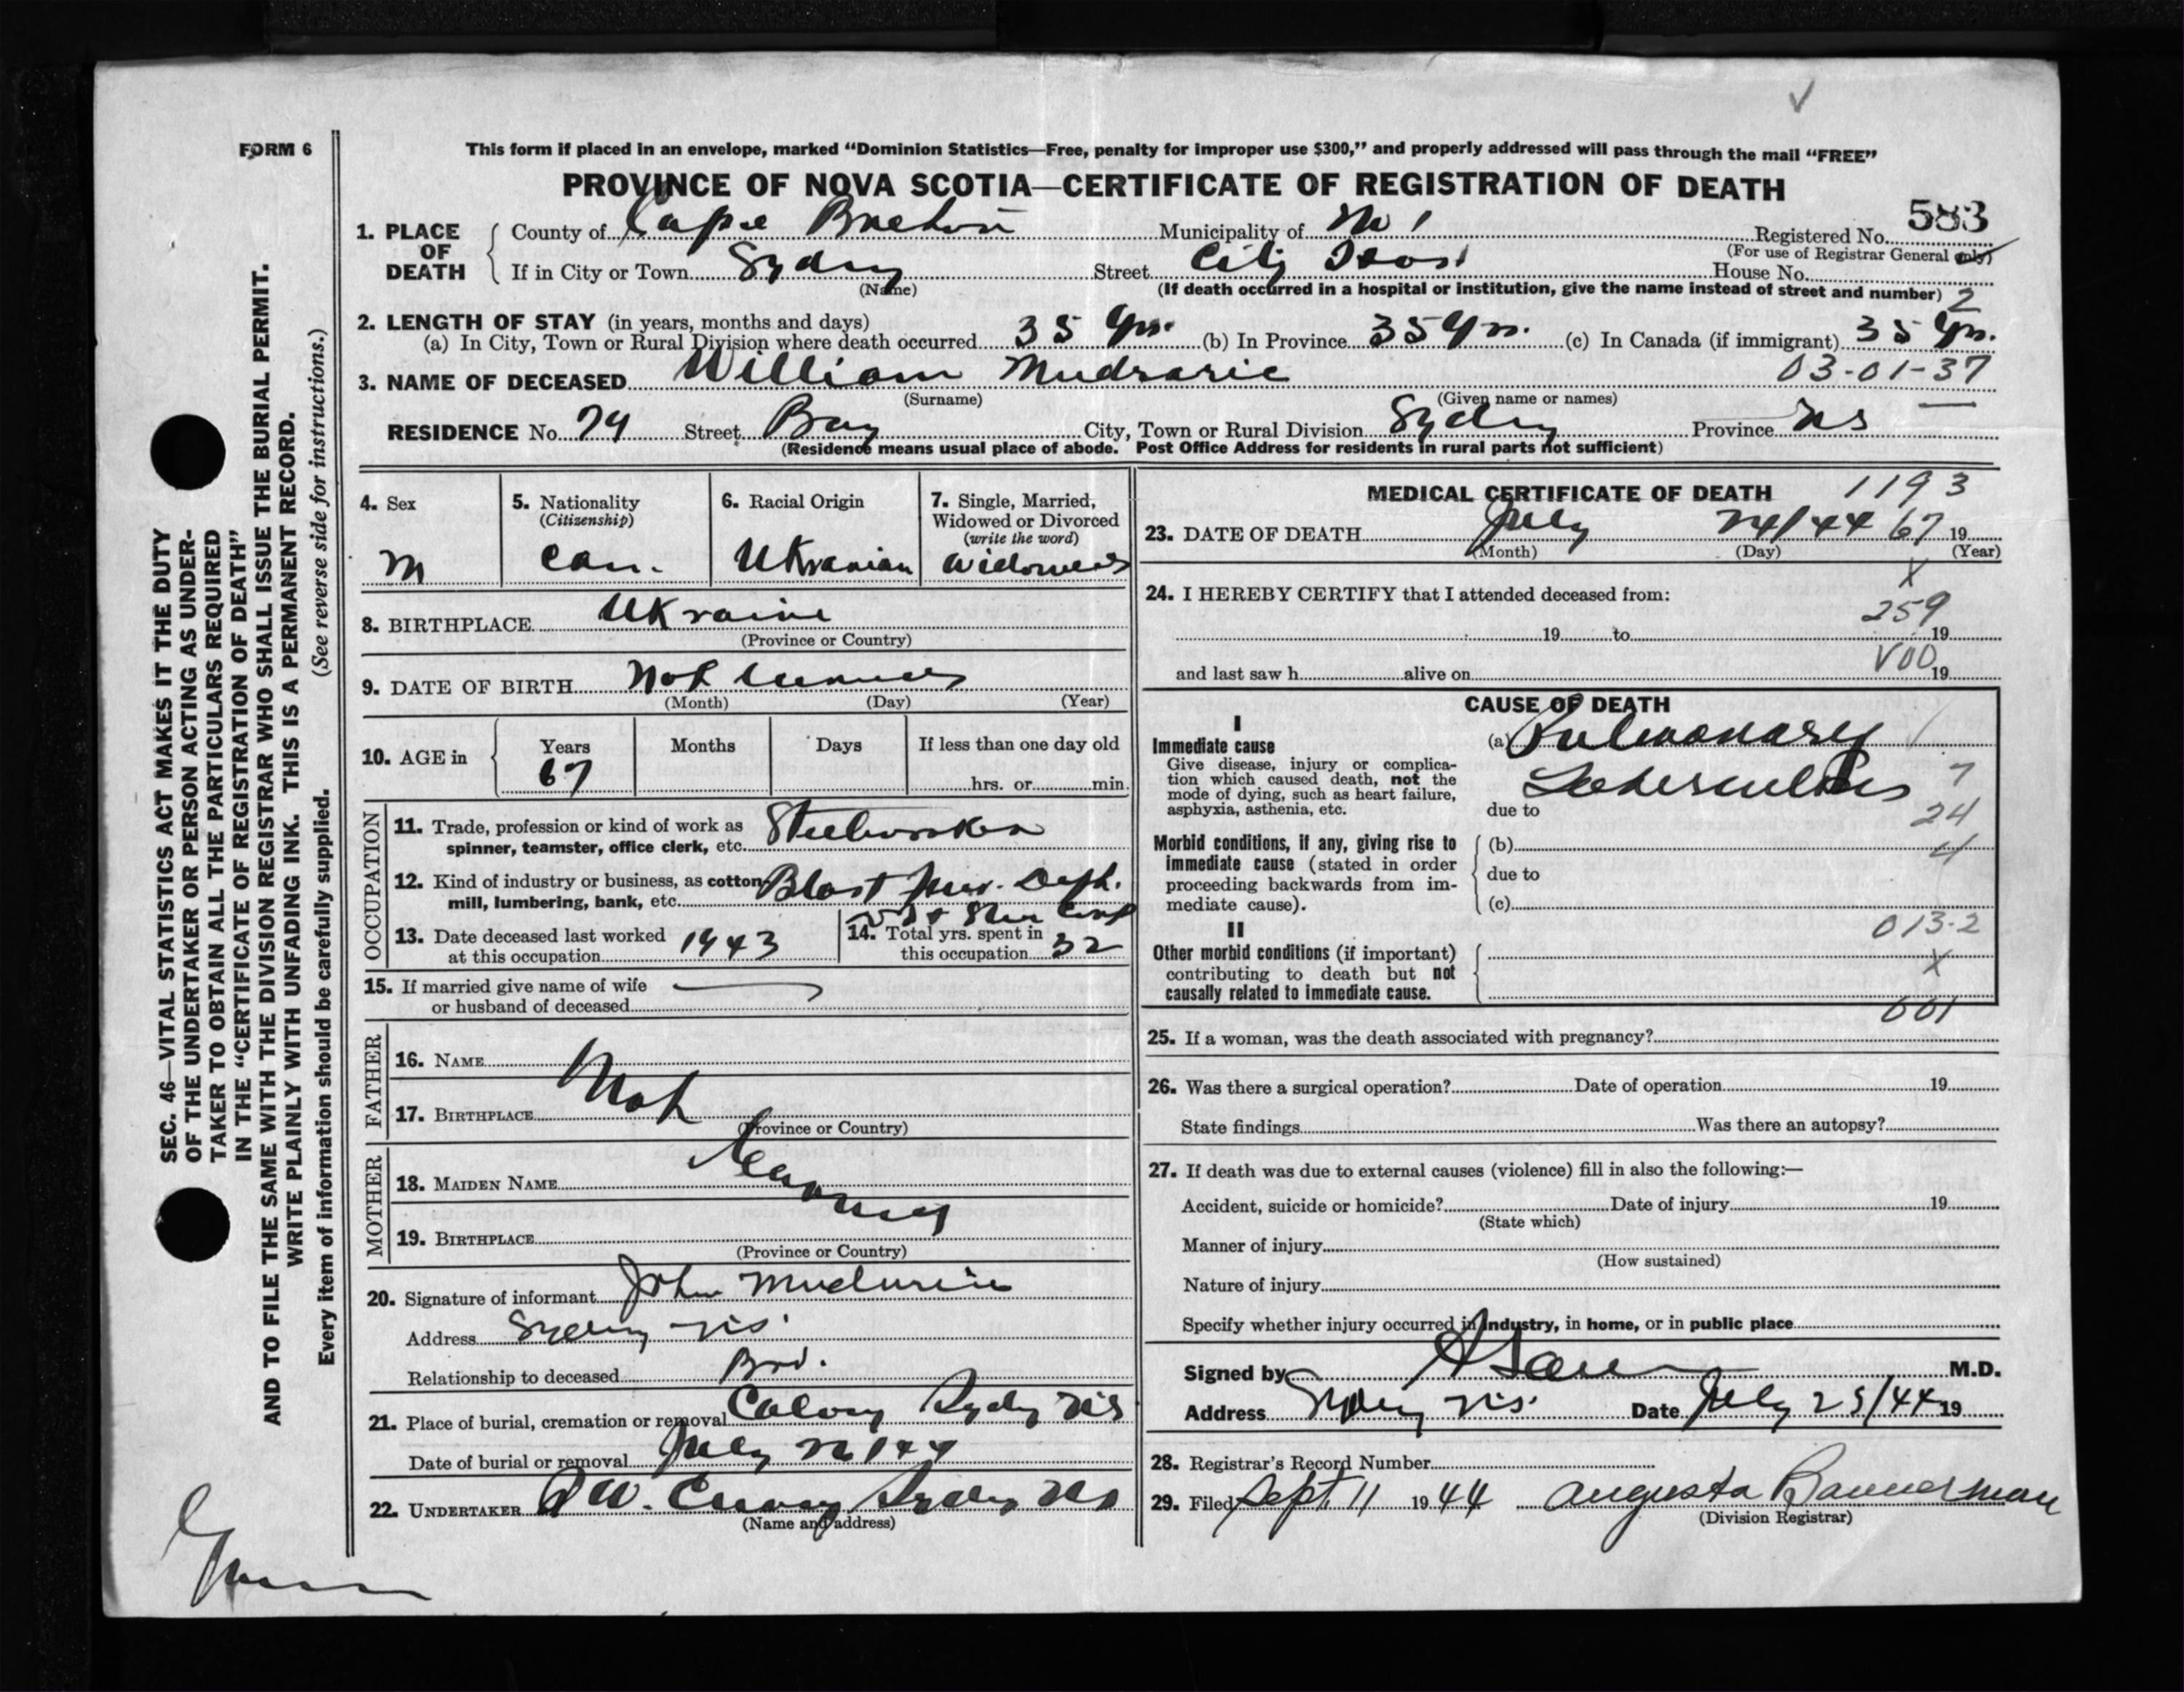 FORM 6
This form if placed in an envelope, marked “Dominion Statistics—Free, penalty for improper use $300,” and properly addressed will pass through the mail “FREE”
PROVINCE OF NOVA SCOTIA—CERTIFICATE OF REGISTRATION OF DEATH
583
1. PLACE OF DEATH County of Cape Breton Municipality of No 1 Registered No.
(For use of Registrar General only)
If in City or Town Sydney Street City Hos House No.
(Name) (If death occurred in a hospital or institution, give the name instead of street and number) 2
2. LENGTH OF STAY (in years, months and days)
(a) In City, Town or Rural Division where death occurred 35 yrs. (b) In Province 35 yrs. (c) In Canada (if immigrant) 35 yrs.
3. NAME OF DECEASED William Mudraric 03-01-37
(Surname) (Given name or names)
RESIDENCE No. 74 Street Bay City, Town or Rural Division Sydney Province NS
(Residence means usual place of abode. Post Office Address for residents in rural parts not sufficient)
4. Sex M
5. Nationality (Citizenship) Can.
6. Racial Origin Ukranian
7. Single, Married, Widowed or Divorced (write the word) Widowed
8. BIRTHPLACE Ukraine
(Province or Country)
9. DATE OF BIRTH Not
(Month) (Day) (Year)
10. AGE in Years 67 Months Days If less than one day old
hrs. or min.
OCCUPATION
11. Trade, profession or kind of work as Steelworker
spinner, teamster, office clerk, etc.
12. Kind of industry or business, as cotton Blast Dept.
mill, lumbering, bank, etc.
13. Date deceased last worked at this occupation 1943
14. Total yrs. spent in this occupation 32
15. If married give name of wife
or husband of deceased
FATHER
16. NAME Not
17. BIRTHPLACE
(Province or Country)
MOTHER
18. MAIDEN NAME
19. BIRTHPLACE
(Province or Country)
20. Signature of informant John
Address Sydney NS
Relationship to deceased
21. Place of burial, cremation or removal Calvary Sydney NS
Date of burial or removal July 26/44
22. UNDERTAKER W. Sydney NS
(Name and address)
MEDICAL CERTIFICATE OF DEATH 1193
23. DATE OF DEATH July 24/44 67 19
(Month) (Day) (Year)
X
24. I HEREBY CERTIFY that I attended deceased from:
259
19 to 19
V00
and last saw h alive on 19
CAUSE OF DEATH
I
Immediate cause
Give disease, injury or complication which caused death, not the
mode of dying, such as heart failure,
asphyxia, asthenia, etc.
(a) Pulmonary
Tuberculosis 7
due to 24
Morbid conditions, if any, giving rise to
immediate cause (stated in order
proceeding backwards from immediate cause).
(b) 4
due to
(c)
013-2
II
Other morbid conditions (if important)
contributing to death but not
causally related to immediate cause.
X
001
25. If a woman, was the death associated with pregnancy?
26. Was there a surgical operation? Date of operation 19
State findings Was there an autopsy?
27. If death was due to external causes (violence) fill in also the following:—
Accident, suicide or homicide? Date of injury 19
(State which)
Manner of injury
(How sustained)
Nature of injury
Specify whether injury occurred in industry, in home, or in public place
Signed by M.D.
Address Sydney NS Date July 25/44 19
28. Registrar's Record Number
29. Filed Sept. 11 1944 Augusta Bannerman
(Division Registrar)
SEC. 46—VITAL STATISTICS ACT MAKES IT THE DUTY
OF THE UNDERTAKER OR PERSON ACTING AS UNDER-
TAKER TO OBTAIN ALL THE PARTICULARS REQUIRED
IN THE “CERTIFICATE OF REGISTRATION OF DEATH”
AND TO FILE THE SAME WITH THE DIVISION REGISTRAR WHO SHALL ISSUE THE BURIAL PERMIT.
WRITE PLAINLY WITH UNFADING INK. THIS IS A PERMANENT RECORD.
Every item of information should be carefully supplied. (See reverse side for instructions.)